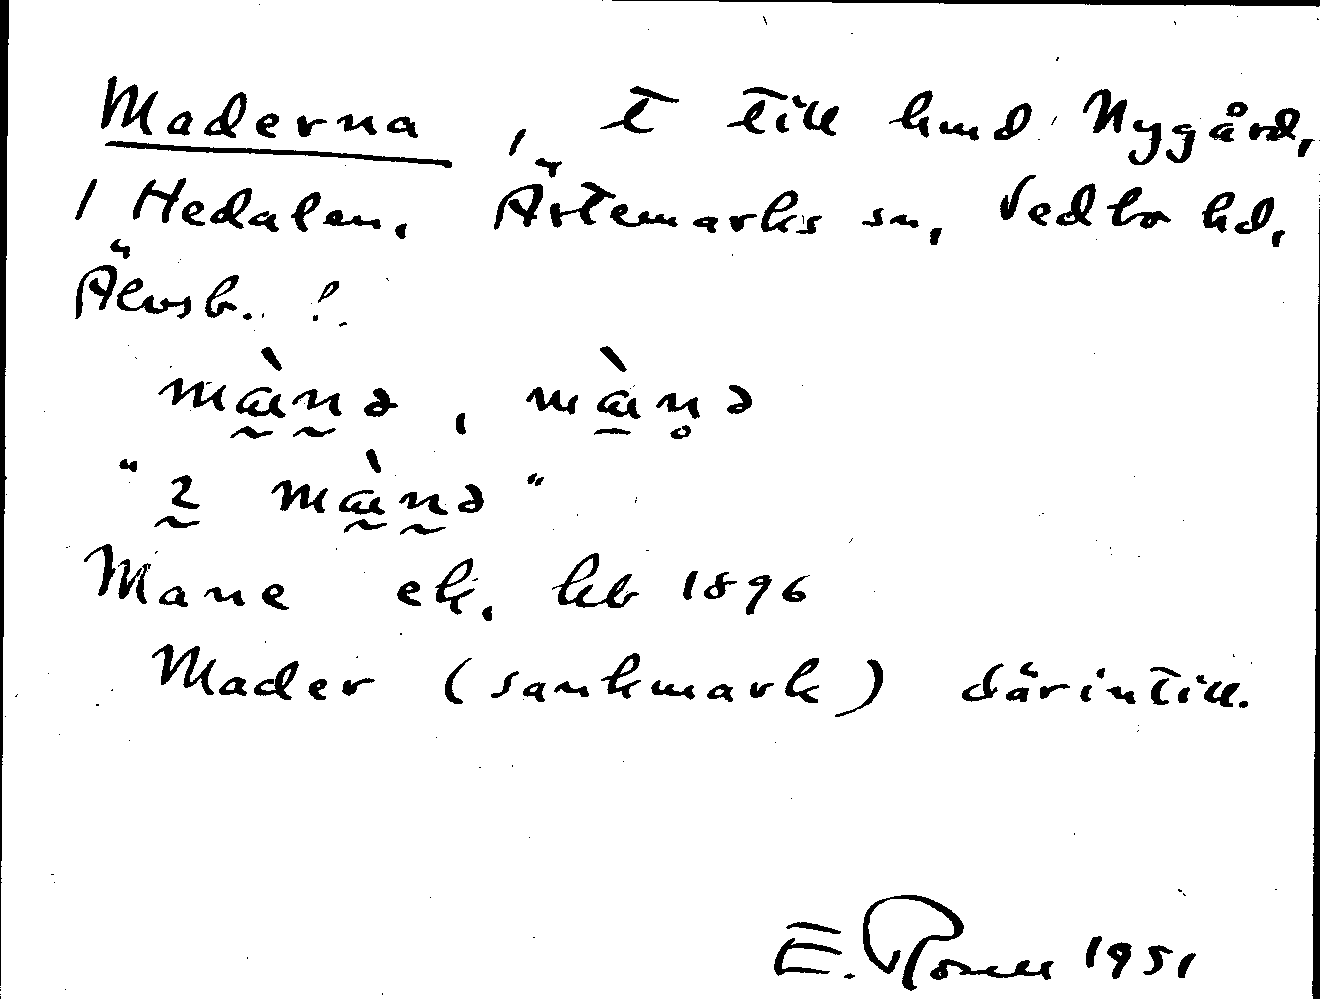 Maderna, t till hmd Nygård,
i Hedalen. Ärtemarks sn, Vedbo hd,
Älvsb. l.
mànə, mànə
"2 mànə"
Mane ek. kb 1896
Mader (sankmark) därintill.
E. 1951